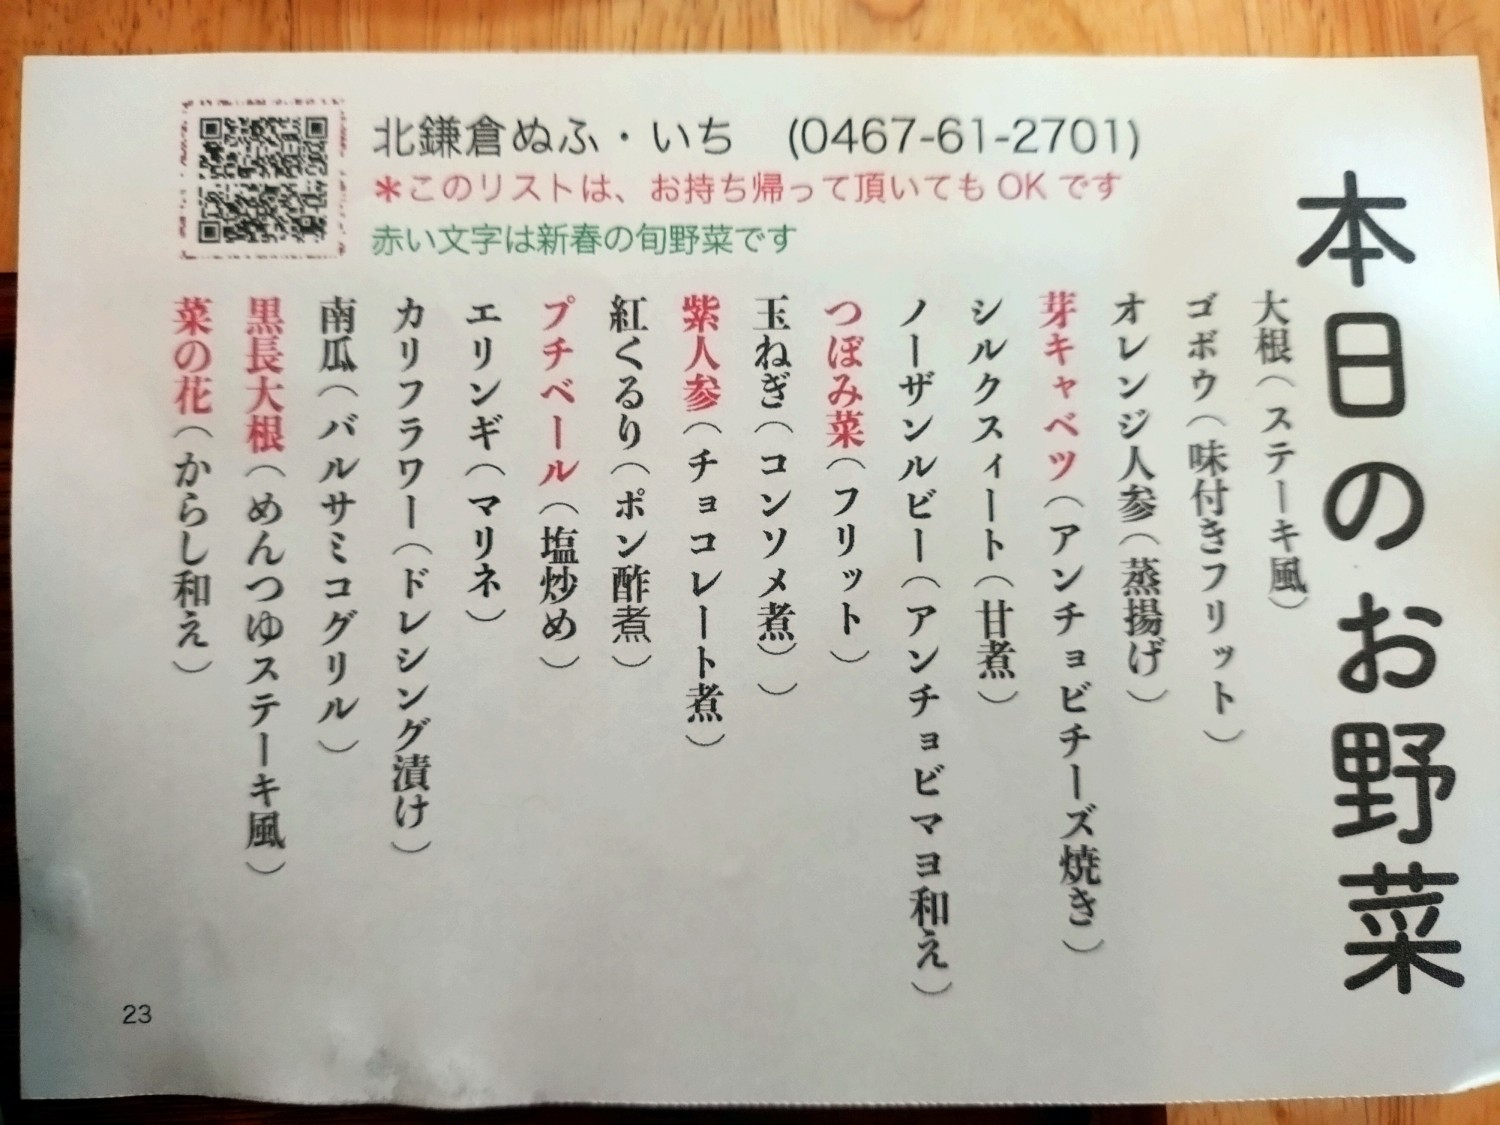 本日のお野菜
北鎌倉ぬふ・いち　(0467-61-2701)
＊このリストは、お持ち帰って頂いてもOKです
赤い文字は新春の旬野菜です
大根（ステーキ風）
ゴボウ（味付きフリット）
オレンジ人参（蒸揚げ）
芽キャベツ（アンチョビチーズ焼き）
シルクスィート（甘煮）
ノーザンルビー（アンチョビマヨ和え）
つぼみ菜（フリット）
玉ねぎ（コンソメ煮））
紫人参（チョコレート煮）
紅くるり（ポン酢煮）
プチベール（塩炒め）
エリンギ（マリネ）
カリフラワー（ドレシング漬け）
南瓜（バルサミコグリル）
黒長大根（めんつゆステーキ風）
菜の花（からし和え）
23